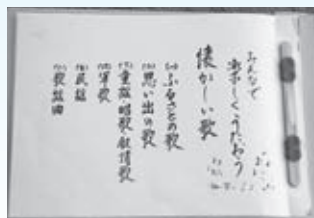 みんなで
楽しくうたおう
懐かしい歌
ふるさとの歌
思い出の歌
童謡・唱歌・叙情歌
軍歌
民謡
歌謡曲